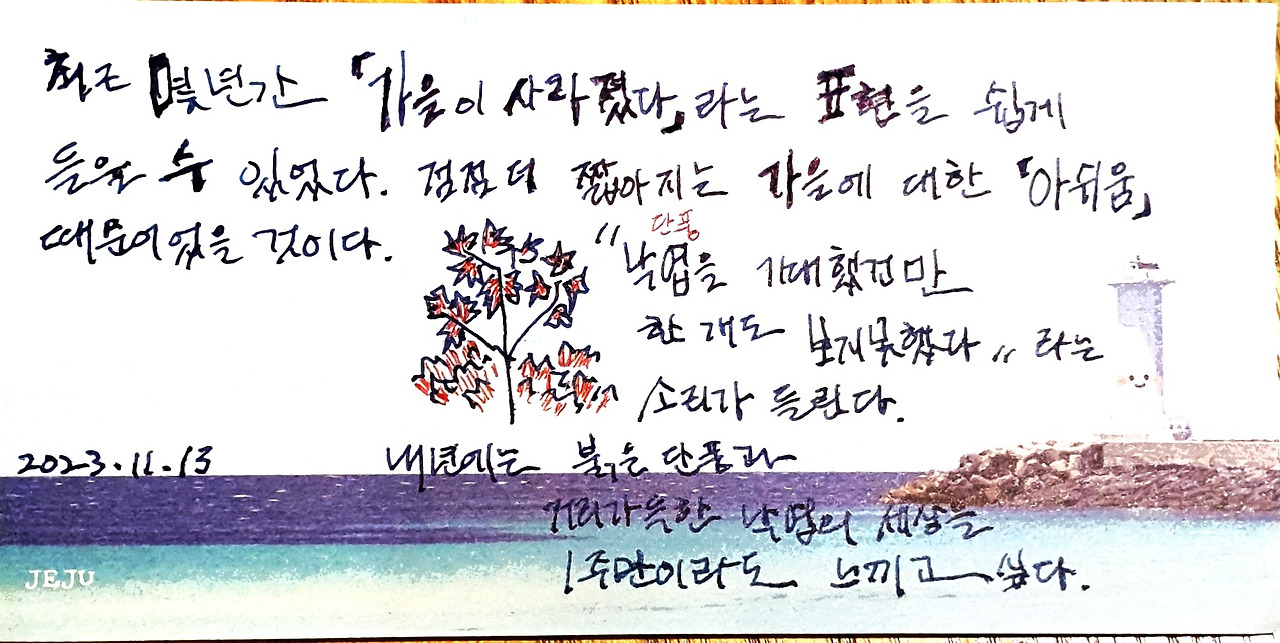 최근 몇년간 「가을이 사라졌다」라는 표현을 쉽게
들을 수 있었다. 점점 더 짧아지는 가을에 대한 「아쉬움」
때문이었을 것이다.
단풍
"낙엽을 기대했건만
한 개도 보지못했다" 라는
소리가 들린다.
2023.11.13
내년에는 붉은 단풍과
거리가득한 낙엽의 세상을
1주만이라도 느끼고 싶다.
JEJU